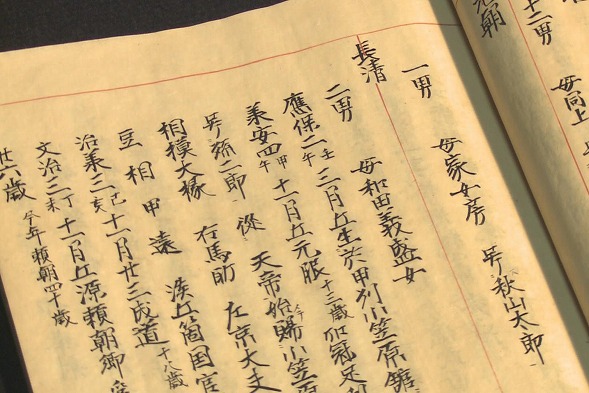 元朝
十二男
母同上
一男 母家女房 号秋山太郎
長清
二男 母和田義盛女
應保二壬午三月五生於甲州小笠原館
義安四甲午十一月五元服十三歳加冠足利
号弥二郎 従 天帝始賜小笠原
相模大掾 右馬助 左京大夫
豆相甲遠 淡五箇国官
治養三己亥十一月廿三成道十八歳
文治三丁未十一月五源頼朝卿
廿六歳 今年頼朝四十歳